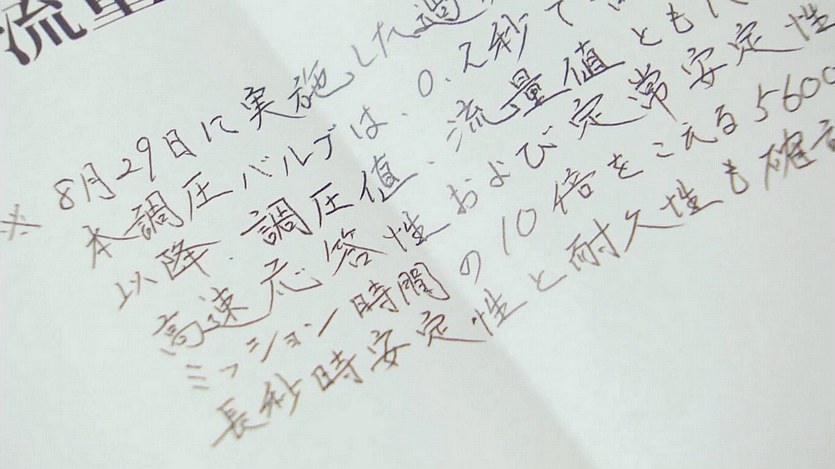 流量
※ 8月29日に実施した過
本調圧バルブは、0.2秒で
以降、調圧値、流量値ともに
高速応答性および定常安定性
ミッション時間の10倍をこえる5600
長秒時安定性と耐久性も確認